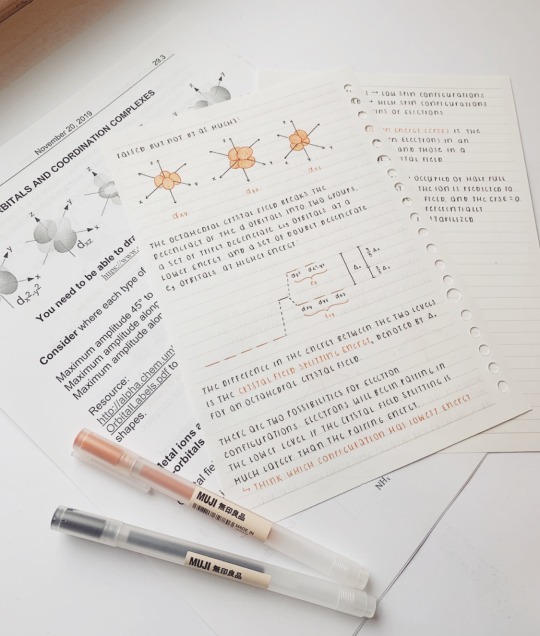 29.3
November 20, 2019
ORBITALS AND COORDINATION COMPLEXES
dx2-y2
dxz
You need to be able to dr
https://www.
Consider where each type of
Maximum amplitude 45° to
Maximum amplitude along
Maximum amplitude alor
Resource:
http://alpha.chem.um
OrbitalLabels.pdf to
shapes.
etal ions a
orbitals
tal fie
NH3
RAISED BUT NOT BY AS MUCH:
THE OCTAHEDRAL CRYSTAL FIELD BREAKS THE
DEGENERACY OF THE d ORBITALS INTO TWO GROUPS.
A SET OF TRIPLY DEGENERATE t2g ORBITALS AT A
LOWER ENERGY AND A SET OF DOUBLY DEGENERATE
eg ORBITALS AT HIGHER ENERGY
THE DIFFERENCE IN THE ENERGY BETWEEN THE TWO LEVELS
IS THE CRYSTAL FIELD SPLITTING ENERGY, DENOTED BY Δo
FOR AN OCTAHEDRAL CRYSTAL FIELD.
THERE ARE TWO POSSIBILITIES FOR ELECTRON
CONFIGURATIONS. ELECTRONS WILL BEGIN PAIRING IN
THE LOWER LEVEL IF THE CRYSTAL FIELD SPLITTING IS
MUCH LARGER THAN THE PAIRING ENERGY.
↳ THINK WHICH CONFIGURATION HAS LOWEST ENERGY
→ LOW SPIN CONFIGURATIONS
→ HIGH SPIN CONFIGURATIONS
OF ELECTRONS
ENERGY (CFSE) IS THE
ELECTRONS IN AN
AND THOSE IN A
FIELD
OCCUPIED OR HALF FULL
THE ION IS PREDICTED TO
FIELD, AND THE CFSE = 0
STABILIZED
MUJI 無印良品
MADE IN
MUJI 無印良品